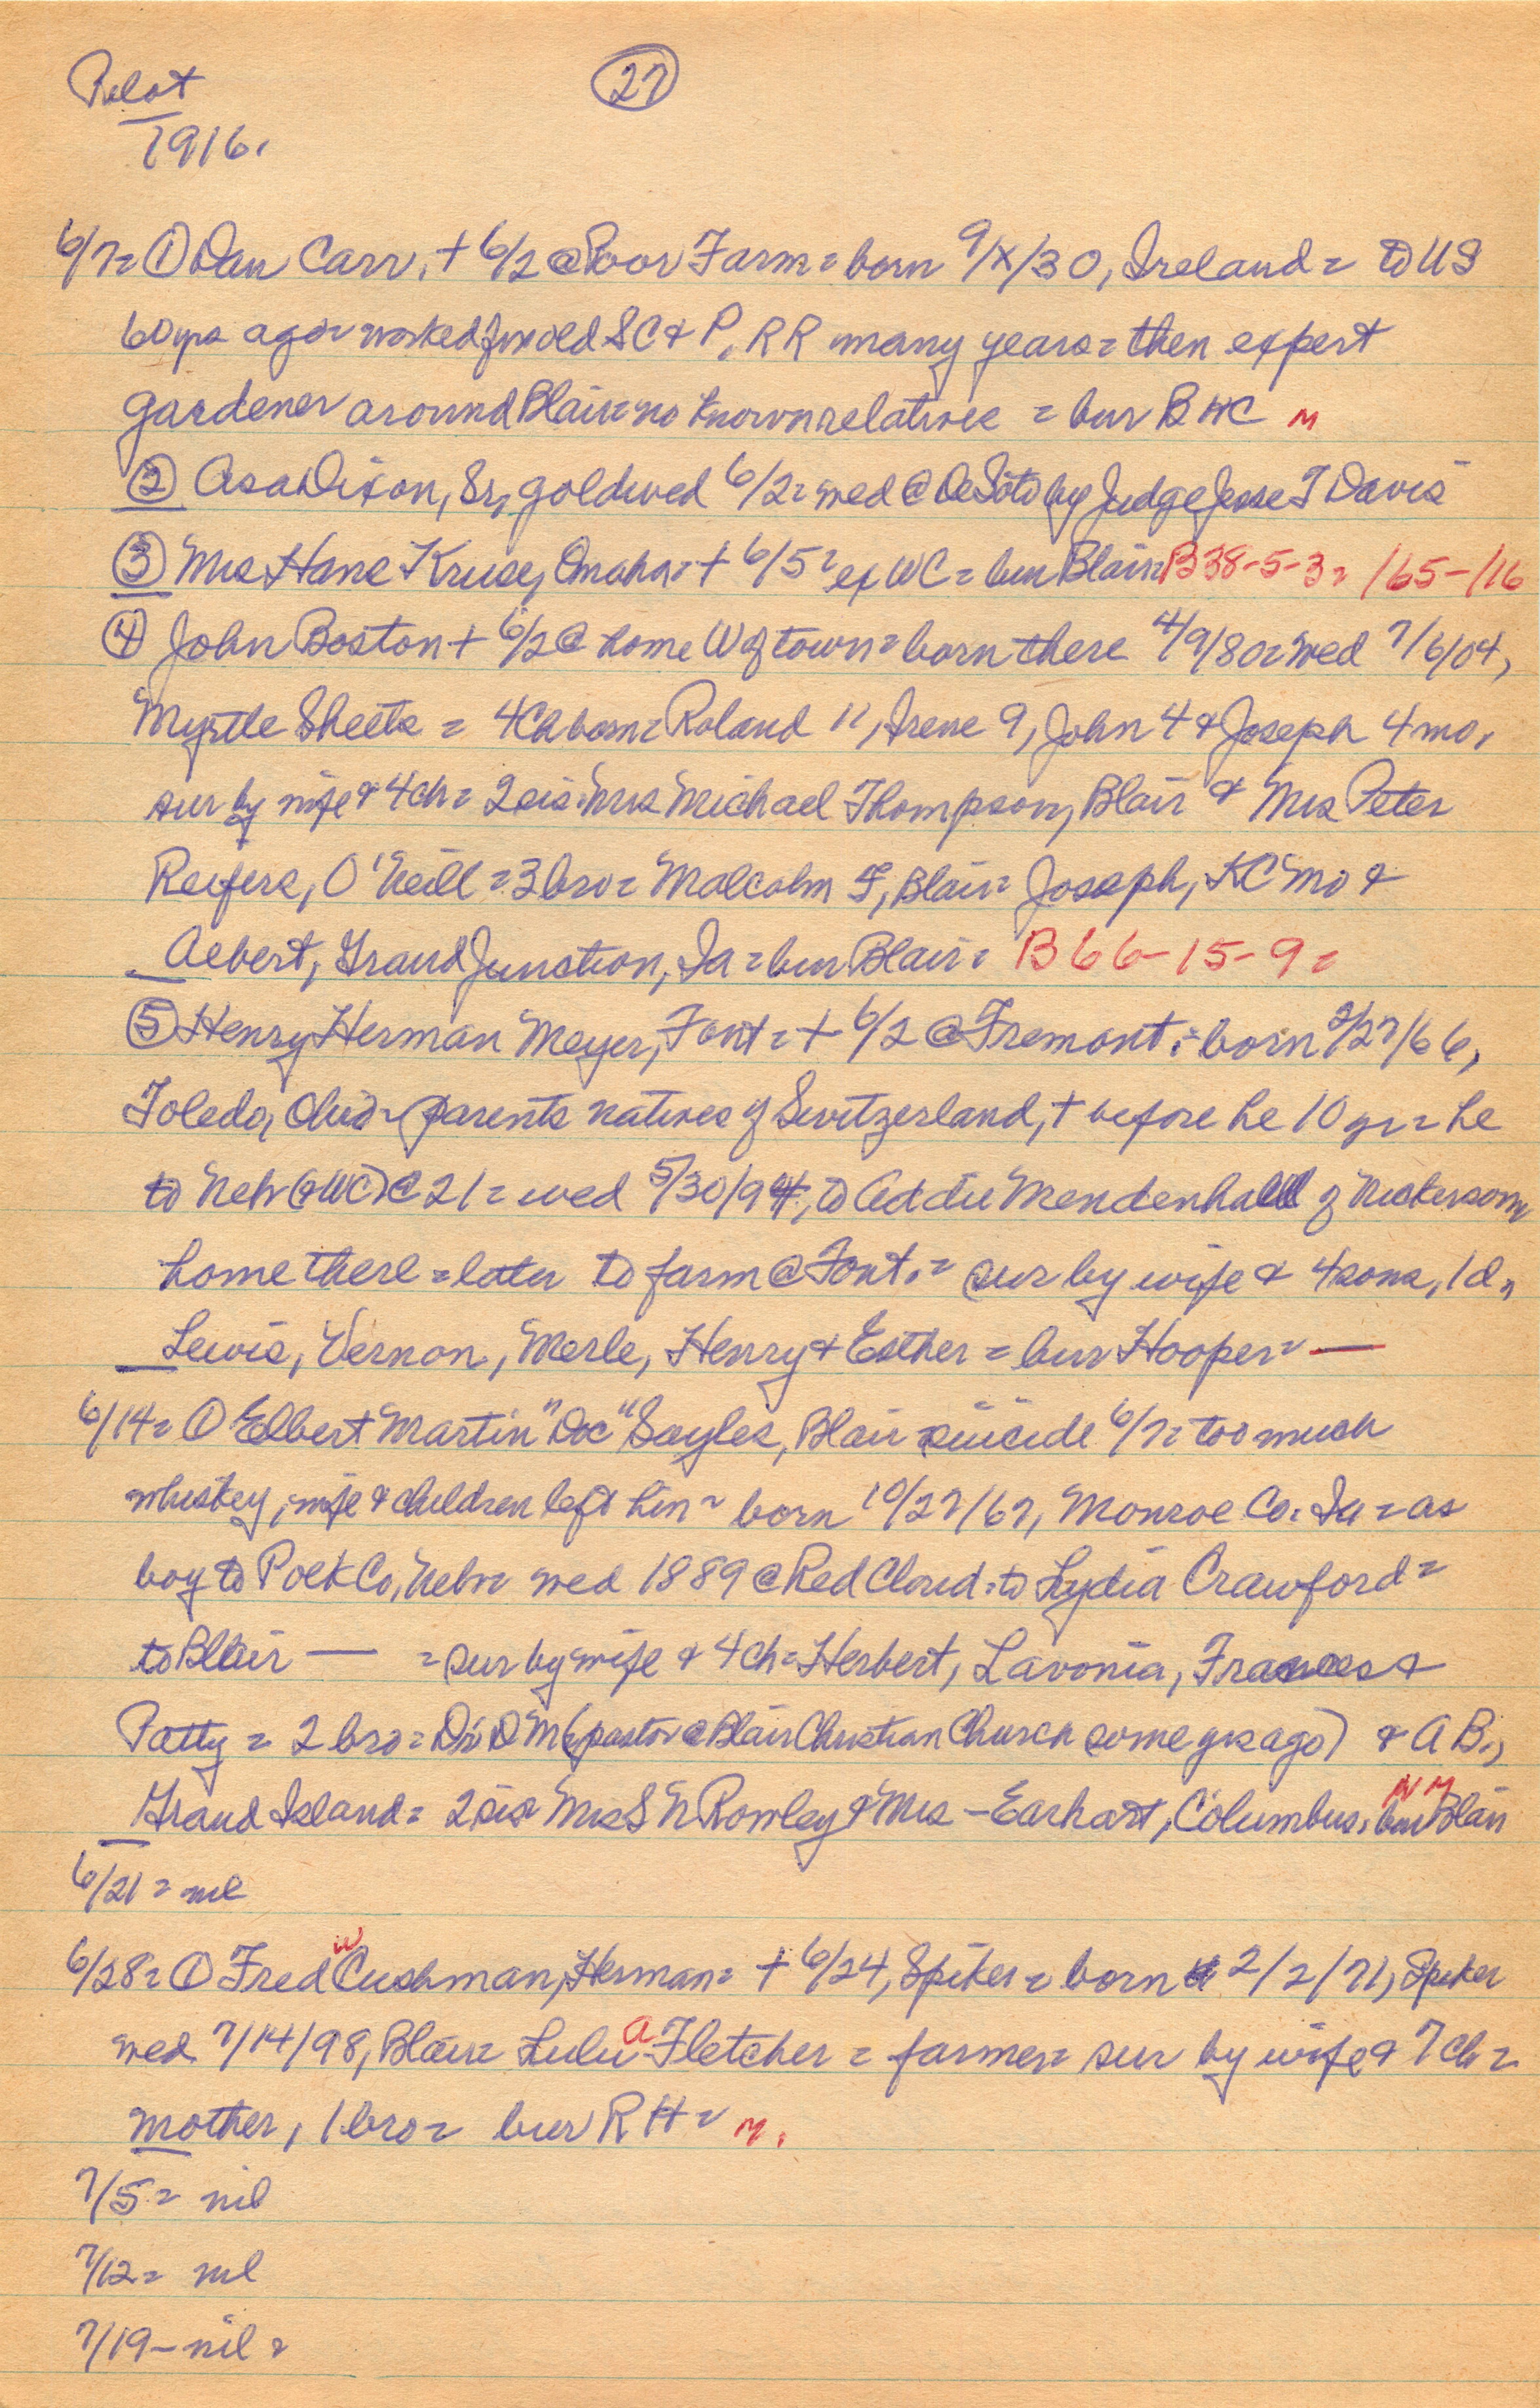 Pilot
27
1916.
6/7= ① Dan Carr, + 6/2 @ Poor Farm = born 9/X/30, Ireland = to US
60 yrs ago = worked for old SC & P, RR many years = then expert
gardener around Blair = no known relatives = bur B HC M
② Asa Dixon, Sr, gold wed 6/2 = wed @ DeSoto by Judge Jesse T Davis
③ Mrs Hans Kruse, Omaha = + 6/5 = ex WC = bur Blair = B38-5-3 = /65-/16
④ John Boston + 6/2 @ home W of town = born there 4/9/80 = wed 7/6/04,
Myrtle Sheets = 4Ch born = Roland 11, Irene 9, John 4 & Joseph 4 mo,
sur by wife & 4ch = 2 sis = Mrs Michael Thompson, Blair & Mrs Peter
Reifers, O'Neill = 3 bro = Malcolm F, Blair = Joseph, KC Mo &
Albert, Grand Junction, Ia = bur Blair = B66-15-9 =
⑤ Henry Herman Meyer, Font = + 6/2 @ Fremont = born 2/27/66,
Toledo, Ohio = parents natives of Switzerland, + before he 10 yr = he
to Neb (& WC) @ 21 = wed 5/30/94, to Addie Mendenhall of Nickerson,
home there = later to farm @ Font. = sur by wife & 4 sons, 1 d,
Lewis, Vernon, Merle, Henry & Esther = bur Hooper = —
6/14= ① Elbert Martin "Doc" Sayles, Blair suicide 6/7 = too much
whiskey, wife & children left him = born 10/27/67, Monroe Co. Ia = as
boy to Polk Co, Neb = wed 1889 @ Red Cloud = to Lydia Crawford =
to Blair — = sur by wife & 4 ch = Herbert, Lavonia, Frances &
Patty = 2 bro = Dr D M (pastor @ Blair Christian Church some yrs ago) & A B.,
Grand Island = 2 sis Mrs S N Rowley & Mrs – Earhart, Columbus. bur Blair N M
6/21 = nil
6/28= ① Fred W Cushman, Herman = + 6/24, Spiker = born 2/2/71, Spiker
wed 7/14/98, Blair = Lulu A Fletcher = farmer = sur by wife & 7 ch =
mother, 1 bro = bur R H = M.
7/5 = nil
7/12 = nil
7/19 – nil =